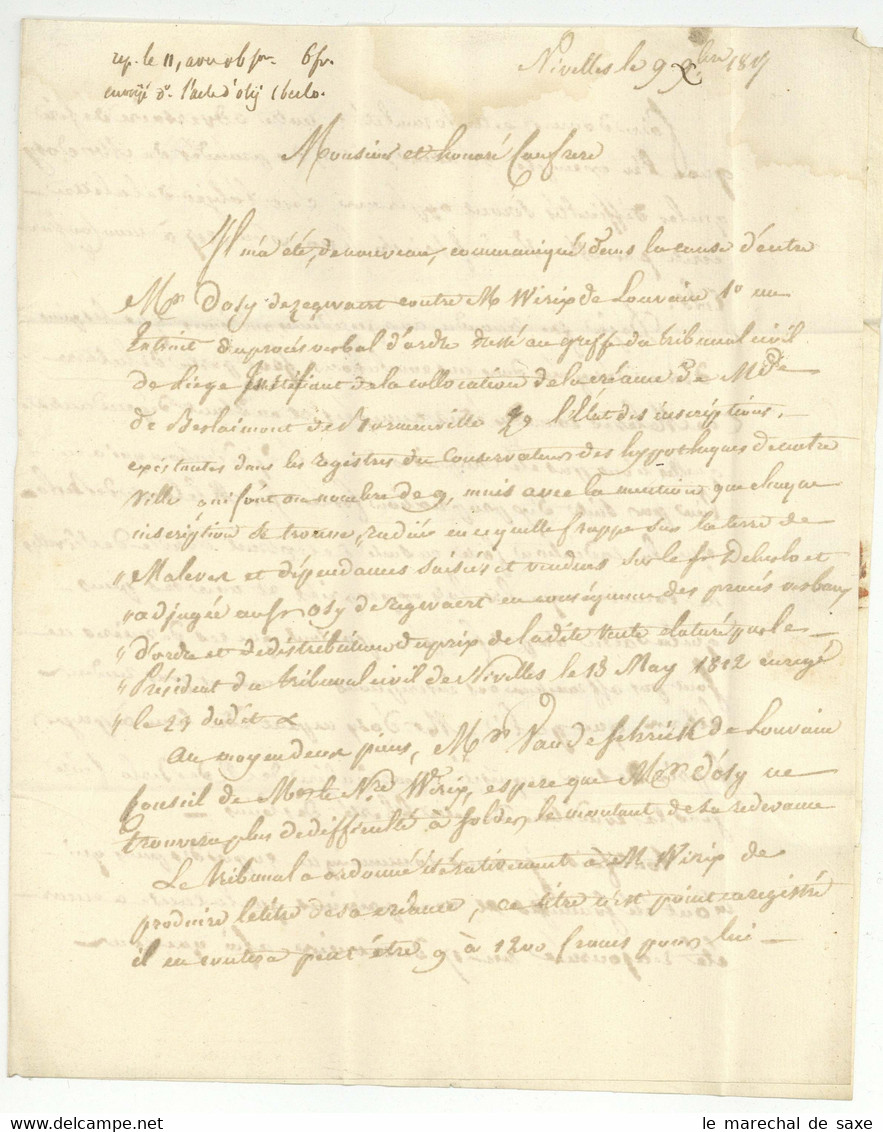 rep. le 11, avec ob 6 fr.
envoyé l'acte d'osy
Nivelles le 9 Xbre 181
Monsieur et honoré Confrere
Il m'a été, de nouveau, communiqué dans la cause d'entre
Mr D'osy de Zegwaert contre M Wirix de Louvain 1o un
Extrait du procès verbal d'ordre au greffe du tribunal civil
de Liège de la collocation de la créance de Mde
de Berlaimont de Bormenville 2o l'Etat des inscriptions,
existantes dans les registres du Conservateur des hypotheques de notre
Ville qui sont au nombre de 9, mais avec la mention que chaque
inscription se trouve, radiée en ce qu'elle frappe sur la terre de
" Maleves et dépendances saisies et vendues sur le sr et
" adjugée au sr osy de Zegwaert en conséquence des procès verbaux
" d'ordre et de distribution du prix de la dite vente cloturé par le
" Président du tribunal civil de Nivelles le 13 May 1812 enregé
" le 23 dudit &
Au moyen de ces pieces, Mr Van de Schrick de Louvain
Conseil de Wirix, espere que Mr D'osy ne
trouvera plus de difficulté à solder le montant de sa redevance
Le tribunal a ordonné itérativement à M. Wirix de
produire le titre de sa créance, ce titre n'est point enregistré
il en coutera peut être 9 à 1200 francs pour lui
le marechal de saxe